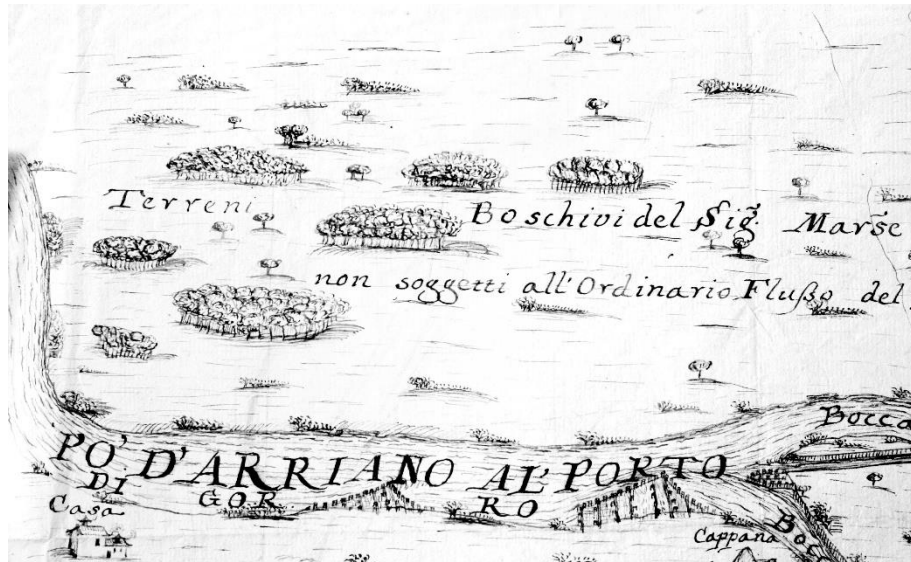 Terreni Boschivi del Sig.̃ Marsẽ
non soggetti all'Ordinario Flußo del
Bocca
PO' D'ARRIANO AL' PORTO
DI GOR RO
Casa
Cappana
Boc